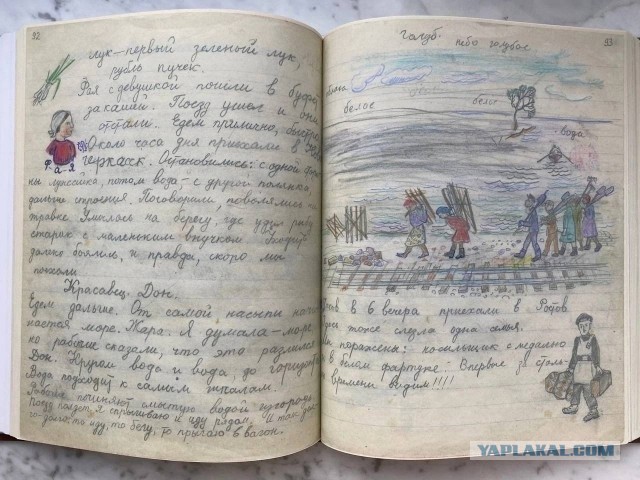 92
лук – первый зеленый лук,
рубль пучек.
Фая с девушкой пошли в буфет,
закрытый. Поезд ушел и они
отстали. Едем прилично, быстро.
Около часа дня приехали в
черкасск. Остановились: с одной
ны лужайка, потом вода – с другой полянка,
дальше строения. Поговорили, повалялись на
травке. Умылась на берегу, где удил рыбу
старик с маленьким внучком.
далеко боялись, и правда, скоро мы
поехали.
Ф-а-я
Красавец Дон.
Едем дальше. От самой насыпи начи-
нается море. Жара. Я думала – море,
но рабочие сказали, что это разлился
Дон. Кругом вода и вода, до горизонта.
Вода подходит к самым шпалам.
Рабочие починяют смытую водой
Поезд ползет, я спрыгиваю и иду рядом. И так дол-
го-долго, то иду, то бегу, то прыгаю в вагон.
93
Голуб. небо голубое
белое
белое
вода
в 6 вечера приехали в Ростов
тоже слезла одна семья.
поражены: носильщик с медалью
в белом фартуке. Впервые за столь-
времени видим!!!!
YAPLAKAL.COM